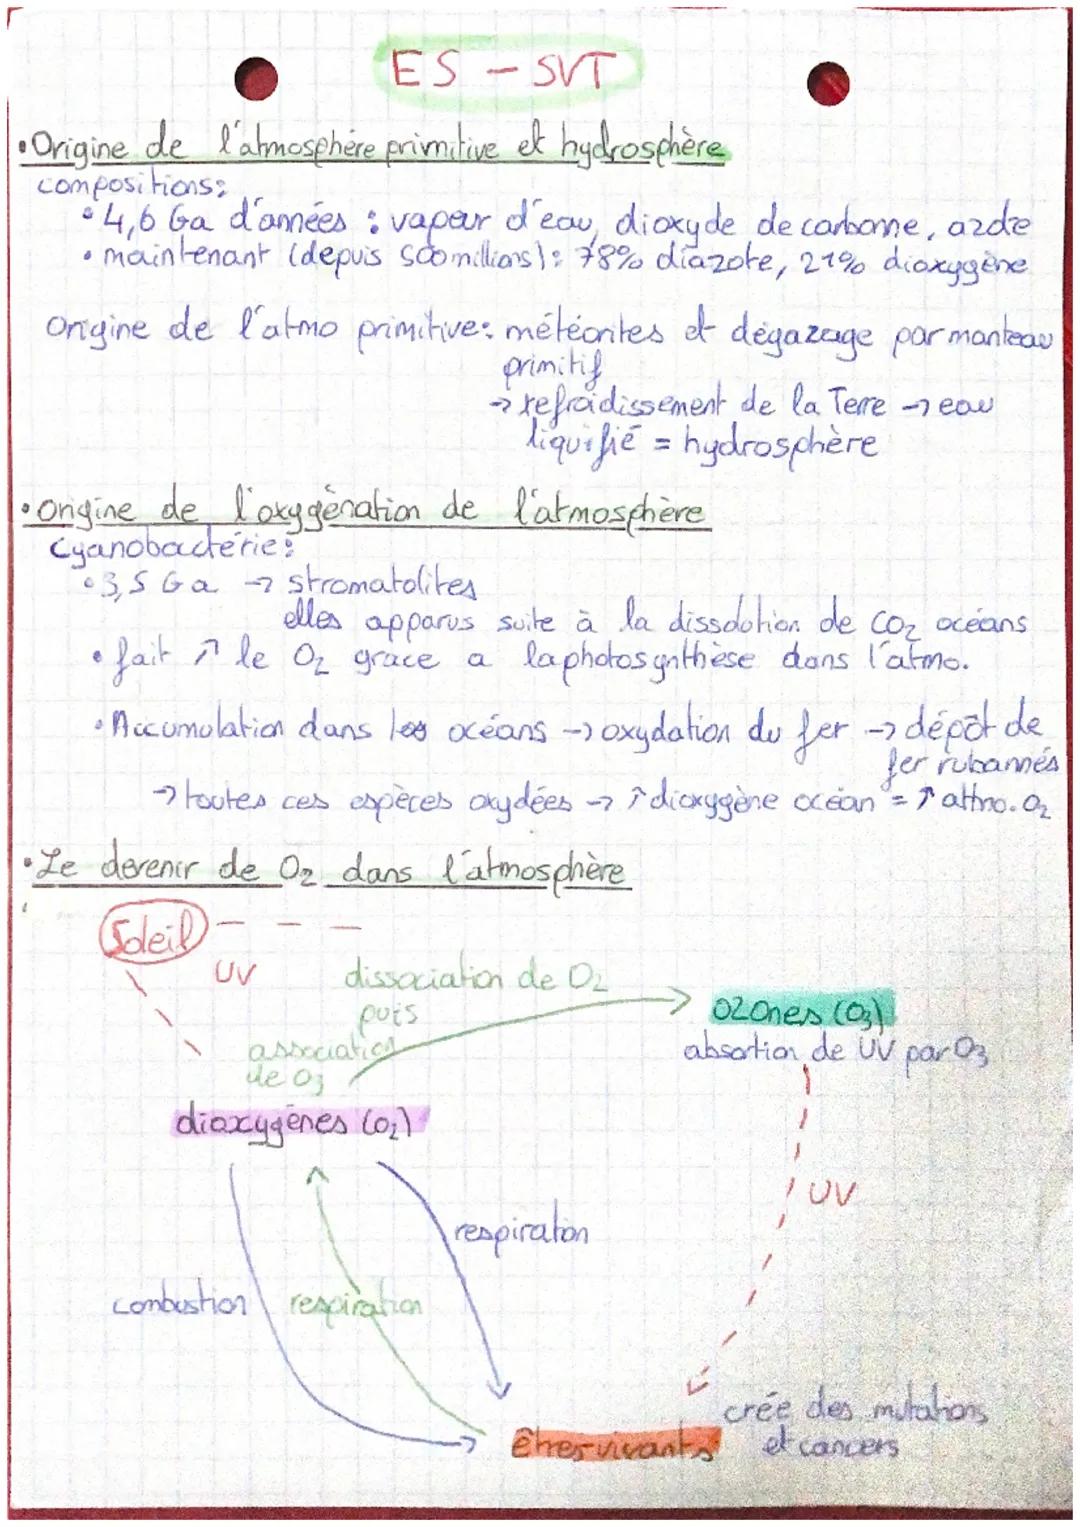 ES - SVT
• Origine de l'atmosphère primitive et hydrosphère
compositions:
• 4,6 Ga d'années : vapeur d'eau, dioxyde de carbonne, azote
• maintenant (depuis 500 millions): 78% diazote, 21% dioxygène
Origine de l'atmo primitive: météorites et dégazage par manteau
primitif
→ refroidissement de la Terre → eau
liquifié = hydrosphère
• Origine de l'oxygénation de l'atmosphère
Cyanobactérie:
• 3,5 Ga → stromatolites
elles apparus suite à la dissolution de CO2 océans
• fait ↗ le O2 grace a la photosynthèse dans l'atmo.
• Accumulation dans les océans → oxydation du fer → dépôt de
fer rubannés
→ toutes ces espèces oxydées → ↑ dioxygène océan = ↑ atmo. O2
• Le devenir de O2 dans l'atmosphère
Soleil
UV
dissociation de O2
puis
association
de O3
ozones (O3)
absortion de UV par O3
dioxygènes (O2)
UV
respiration
combustion
respiration
êtres vivants
crée des mutations
et cancers